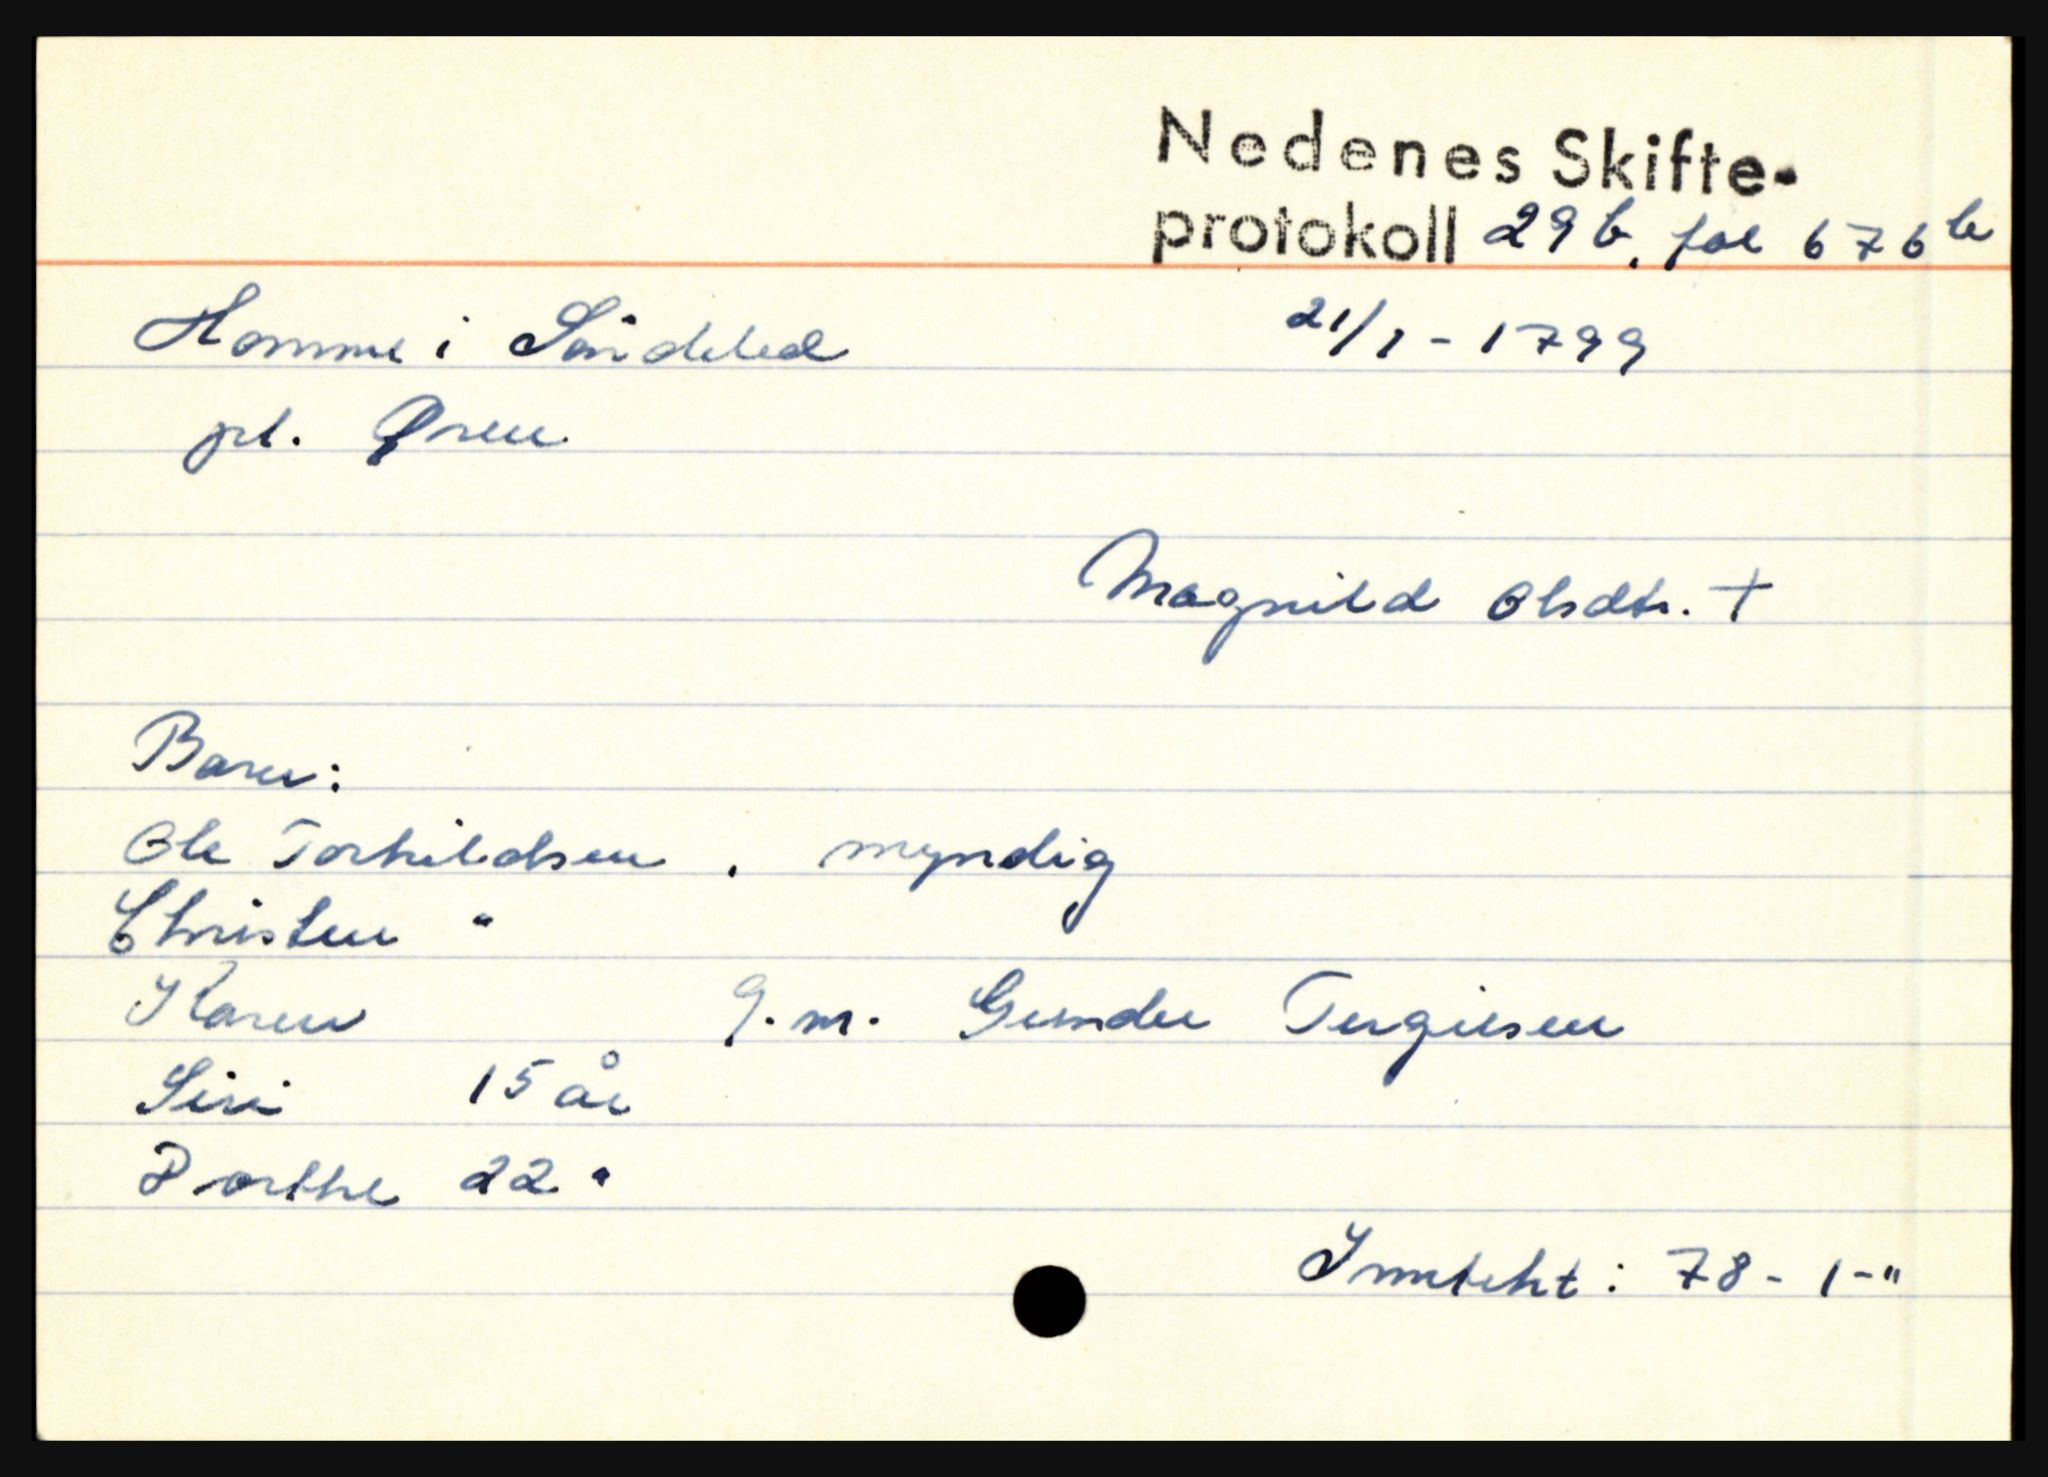 Nedenes Skifte-
protokoll 29 b, fol 676 b
Homme i Söndeled 21/1 - 1799
pl. Øren
Magnild Olsdtr. +
Barn:
Ole Torkildsen, myndig
Christen "
Karen g. m. Gunder Tergiesen
Siri 15 år
Dorthe 22 "
Inntekt: 78 - 1 - "